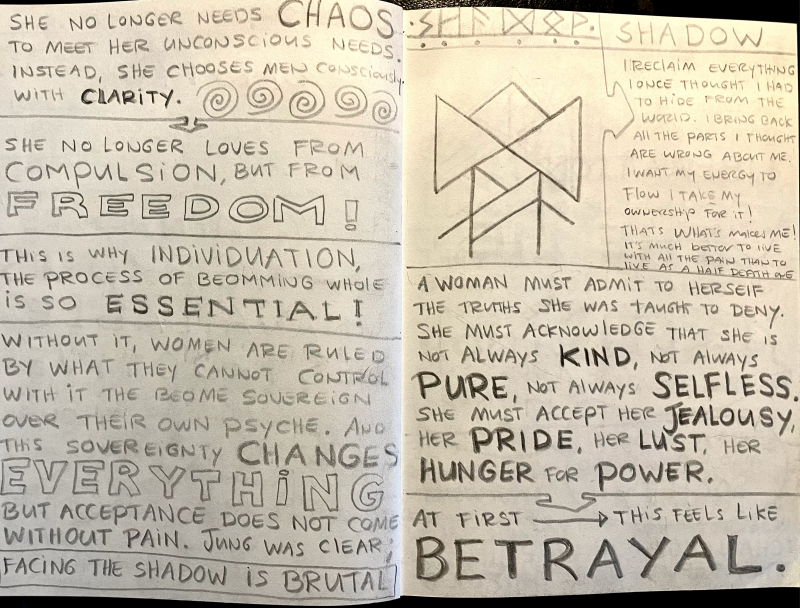 SHE NO LONGER NEEDS CHAOS
TO MEET HER UNCONSCIOUS NEEDS.
INSTEAD, SHE CHOOSES MEN CONSCIOUSLY
WITH CLARITY.
SHE NO LONGER LOVES FROM
COMPULSION, BUT FROM
FREEDOM!
THIS IS WHY INDIVIDUATION,
THE PROCESS OF BEOMMING WHOLE
IS SO ESSENTIAL!
WITHOUT IT, WOMEN ARE RULED
BY WHAT THEY CANNOT CONTROL
WITH IT THE BEOME SOVEREIGN
OVER THEIR OWN PSYCHE. AND
THIS SOVEREIGNTY CHANGES
EVERYTHING
BUT ACCEPTANCE DOES NOT COME
WITHOUT PAIN. JUNG WAS CLEAR;
FACING THE SHADOW IS BRUTAL
ᛊᚺᚨᛞᛟᚹ
SHADOW
I RECLAIM EVERYTHING
I ONCE THOUGHT I HAD
TO HIDE FROM THE
WORLD. I BRING BACK
All THE PARTS I THOUGHT
ARE WRONG ABOUT ME.
I WANT MY ENERGY TO
FLOW I TAKE MY
OWNERSHIP FOR IT!
THATS WHAT'S makes ME!
IT'S MUCH bettor TO liVE
WITH All THE PAIN THAN TO
liVE AS A HALF DEATH ONE
A WOMAN MUST ADMIT TO HERSElF
THE TRUTHS SHE WAS TAUGHT TO DENY.
SHE MUST ACKNOWlEDGE THAT SHE IS
NOT ALWAYS KIND, NOT AlWAYS
PURE, NOT AlWAYS SELFLESS.
SHE MUST ACCEPT HER JEALOUSY,
HER PRIDE, HER LUST, HER
HUNGER FOR POWER.
AT FIRST → THIS FEELS LIKE
BETRAYAL.